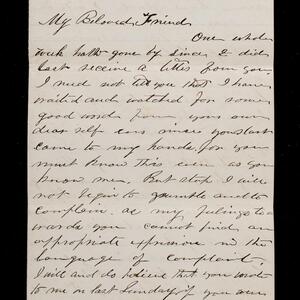 My Beloved Friend
One whole
week hath gone by since I did
last receive a letter from you
I need not tell you that I have
waited and watched for some
good word from your own
dear self ever since your last
came to my hands for you
must know this even as you
know me. But stop I will
not begin to grumble and to
complain, as my feelings to
wards you cannot find an
appropriate expression in the
language of complaint,
I will and do believe that you wrote
to me on last Sunday if you